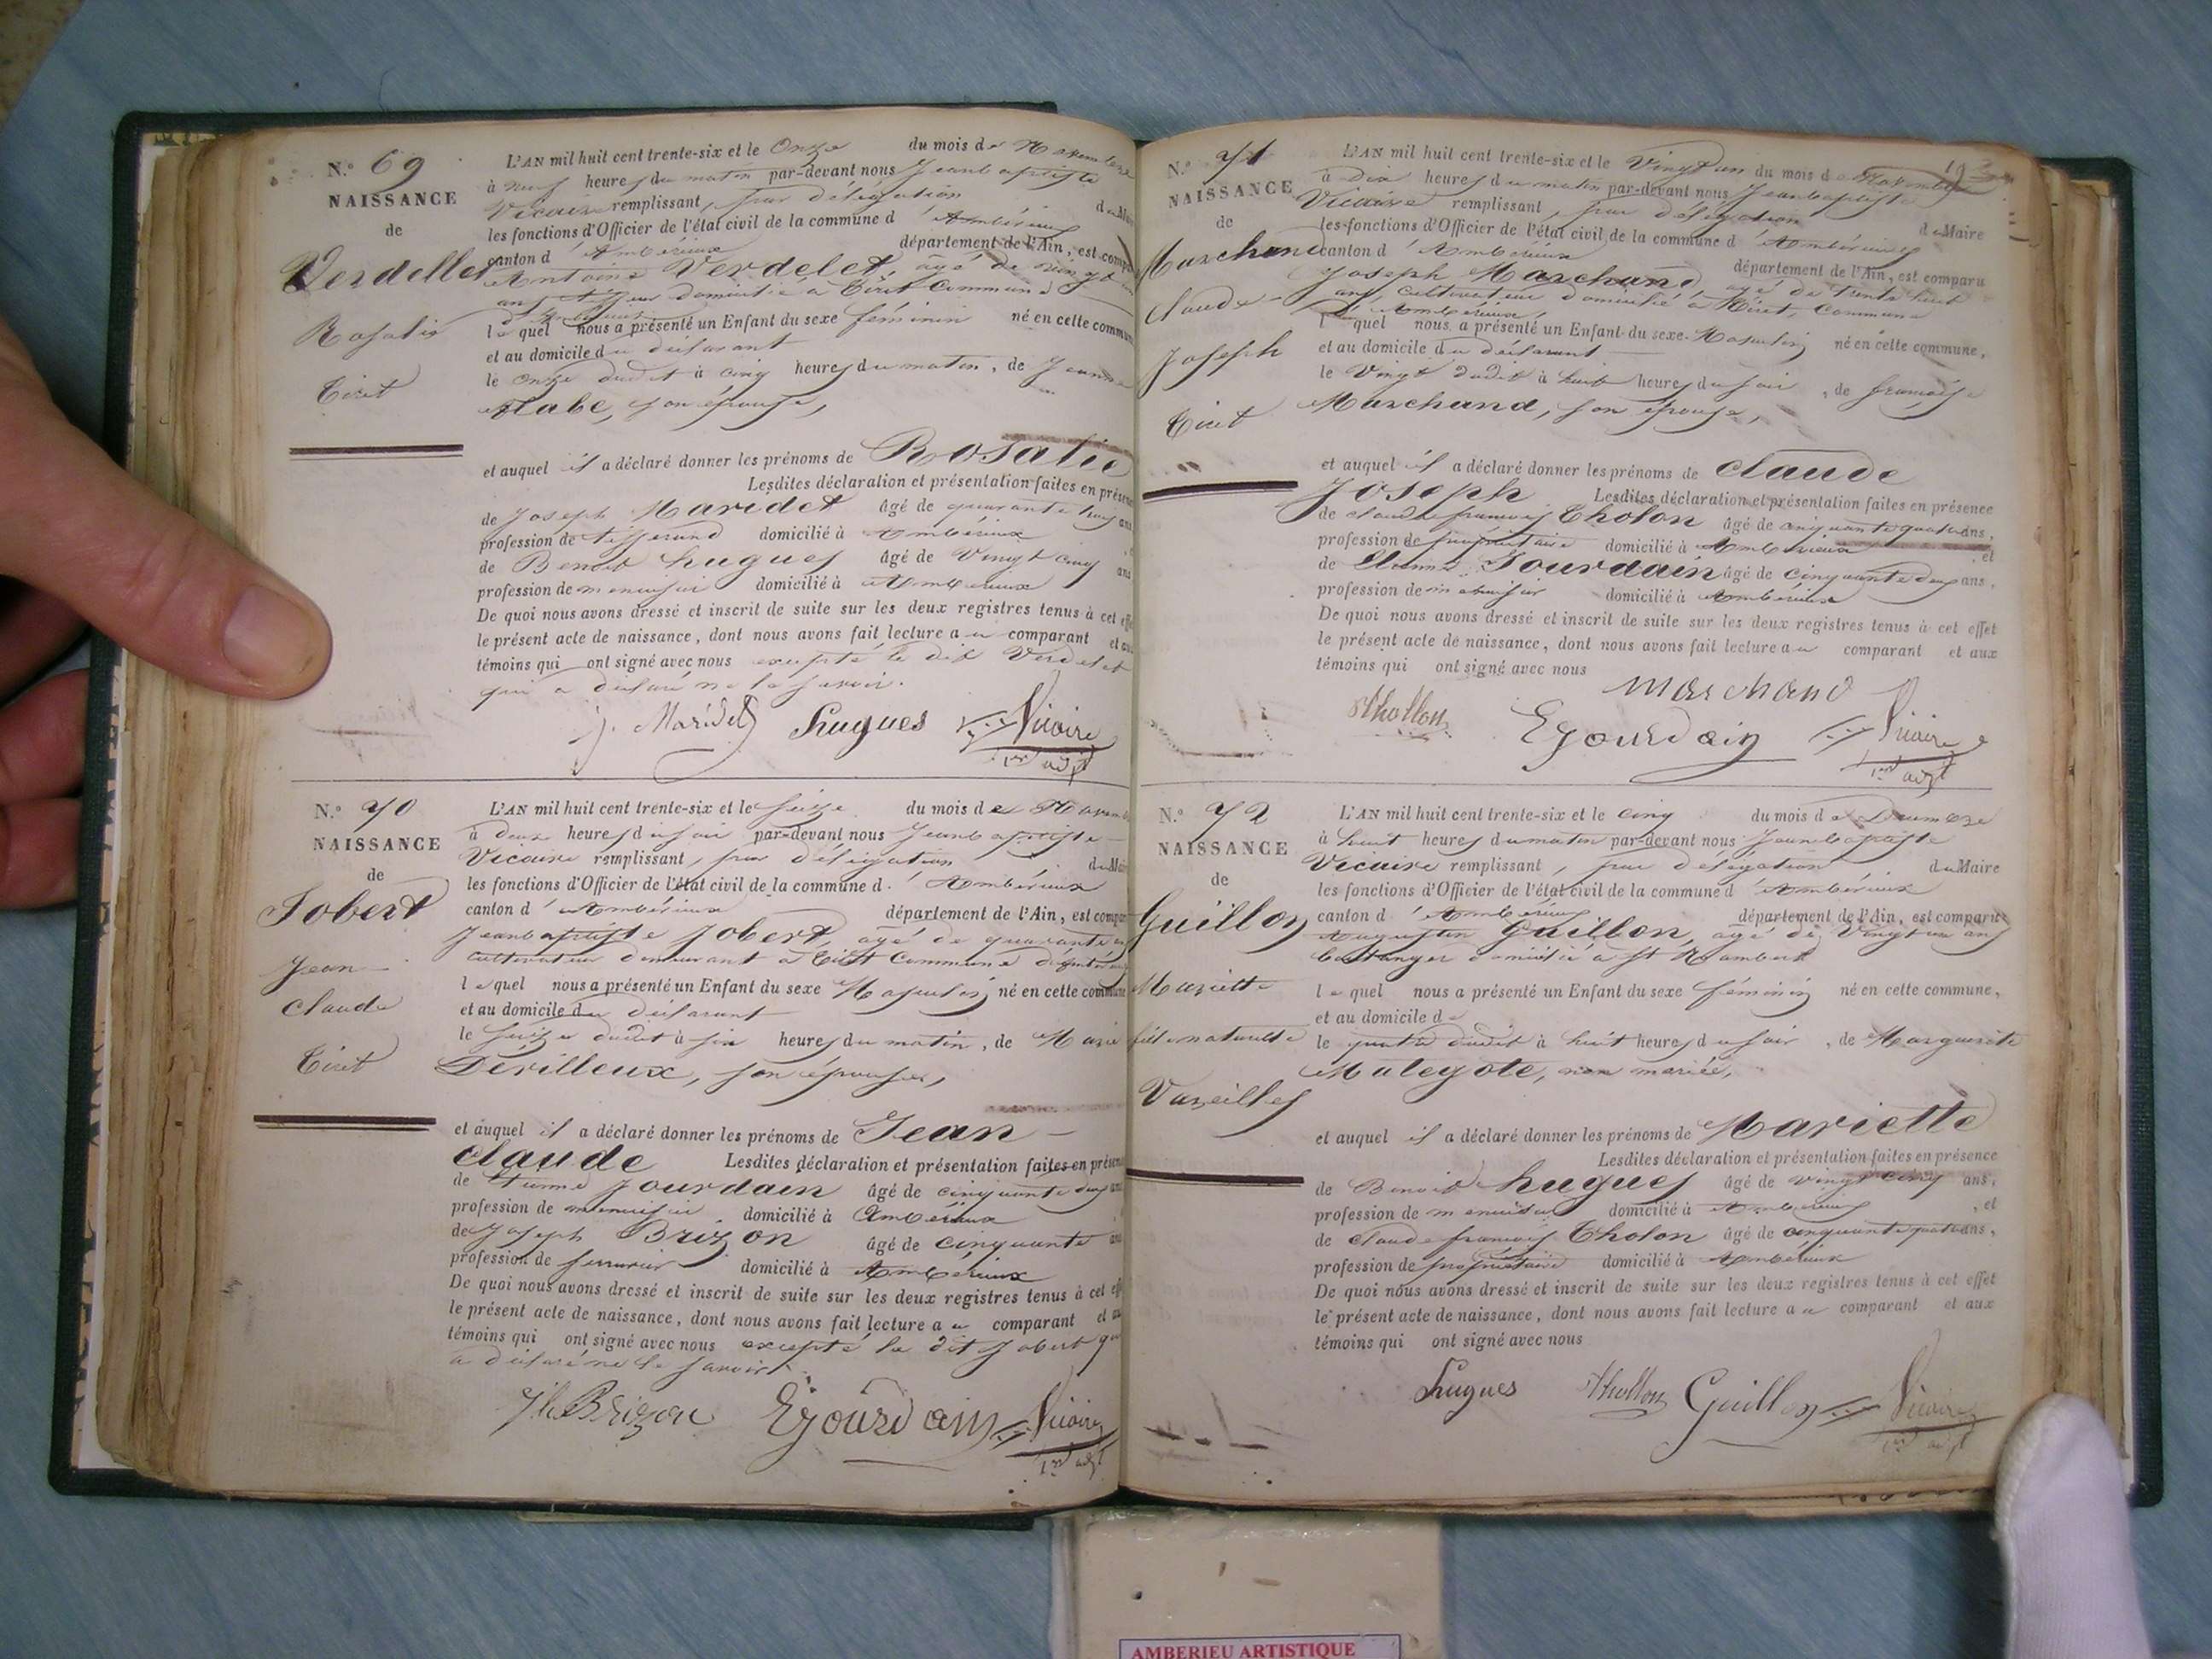 N.º 69
NAISSANCE
de
Verdellet
Rosalie
Tiret
L'AN mil huit cent trente-six et le onze du mois de Novembre
à neuf heures du matin par-devant nous Jeanbaptiste
Vicaire remplissant, par délégation du Maire
les fonctions d'Officier de l'état civil de la commune d'Ambérieux
canton d'Ambérieux département de l'Ain, est comparu
Antoine Verdelet, âgé de vingt
ans domicilié à Tiret commune
d'Ambérieux
lequel nous a présenté un Enfant du sexe féminin né en cette commune
et au domicile du déclarant
le onze dudit à cinq heures du matin, de Jeanne
son épouse,
et auquel il a déclaré donner les prénoms de Rosalie
Lesdites déclaration et présentation faites en présence
de Joseph Maridet âgé de quarante ans
profession de tisserand domicilié à Ambérieux
de Benoit hugues âgé de Vingt cinq ans
profession de menuisier domicilié à Ambérieux
De quoi nous avons dressé et inscrit de suite sur les deux registres tenus à cet effet
le présent acte de naissance, dont nous avons fait lecture au comparant et aux
témoins qui ont signé avec nous excepté le dit Verdelet
qui a déclaré ne le savoir.
J. Maridet Hugues Vicaire
1er adjt
N.º 70
NAISSANCE
de
Jobert
Jean
Claude
Tiret
L'AN mil huit cent trente-six et le seize du mois de Novembre
à deux heures du soir par-devant nous Jeanbaptiste
Vicaire remplissant, par délégation du Maire
les fonctions d'Officier de l'état civil de la commune d'Ambérieux
canton d'Ambérieux département de l'Ain, est comparu
Jeanbaptiste Jobert, âgé de quarante
cultivateur demeurant à Tiret commune d'Ambérieux
lequel nous a présenté un Enfant du sexe Masculin né en cette commune
et au domicile du déclarant
le seize dudit à six heures du matin, de Marie
Dérilleux, son épouse,
et auquel il a déclaré donner les prénoms de Jean
claude Lesdites déclaration et présentation faites en présence
de Etienne Jourdain âgé de cinquante deux ans
profession de menuisier domicilié à Ambérieux
de Joseph Brizon âgé de cinquante ans
profession de serrurier domicilié à Ambérieux
De quoi nous avons dressé et inscrit de suite sur les deux registres tenus à cet effet
le présent acte de naissance, dont nous avons fait lecture au comparant et aux
témoins qui ont signé avec nous excepté le dit Jobert qui
a déclaré ne le savoir.
Jh Brizon EJourdain Vicaire
1er adjt
N.º 71
NAISSANCE
de
Marchand
Claude
Joseph
Tiret
L'AN mil huit cent trente-six et le Vingt un du mois de Novembre
à Dix heures du matin par-devant nous Jeanbaptiste
Vicaire remplissant, par délégation du Maire
les fonctions d'Officier de l'état civil de la commune d'Ambérieux
canton d'Ambérieux département de l'Ain, est comparu
Joseph Marchand, âgé de trente huit
ans, cultivateur domicilié à Tiret, commune
d'Ambérieux,
lequel nous a présenté un Enfant du sexe Masculin né en cette commune,
et au domicile du déclarant
le Vingt dudit à huit heures du soir, de françoise
Marchand, son épouse,
et auquel il a déclaré donner les prénoms de claude
Joseph Lesdites déclaration et présentation faites en présence
de claude françois Tholon âgé de cinquante quatre ans,
profession de propriétaire domicilié à Ambérieux et
de Etienne Jourdain âgé de cinquante deux ans,
profession de menuisier domicilié à Ambérieux
De quoi nous avons dressé et inscrit de suite sur les deux registres tenus à cet effet
le présent acte de naissance, dont nous avons fait lecture au comparant et aux
témoins qui ont signé avec nous
marchand
Thollon EJourdain Vicaire
1er adjt
N.º 72
NAISSANCE
de
Guillon
Mariette
fille naturelle
Vareilles
L'AN mil huit cent trente-six et le cinq du mois de Décembre
à huit heures du matin par-devant nous Jeanbaptiste
Vicaire remplissant, par délégation du Maire
les fonctions d'Officier de l'état civil de la commune d'Ambérieux
canton d'Ambérieux département de l'Ain, est comparu
Augustin Guillon, âgé de Vingt un ans
boulanger domicilié à St Rambert
lequel nous a présenté un Enfant du sexe féminin né en cette commune,
et au domicile de
le quatre dudit à huit heures du soir, de Marguerite
Malegote, non mariée,
et auquel il a déclaré donner les prénoms de Mariette
Lesdites déclaration et présentation faites en présence
de Benoit hugues âgé de vingt cinq ans,
profession de menuisier domicilié à Ambérieux, et
de claude françois Tholon âgé de cinquante quatre ans,
profession de propriétaire domicilié à Ambérieux
De quoi nous avons dressé et inscrit de suite sur les deux registres tenus à cet effet
le présent acte de naissance, dont nous avons fait lecture au comparant et aux
témoins qui ont signé avec nous
Hugues Thollon Guillon Vicaire
1er adjt
AMBERIEU ARTISTIQUE